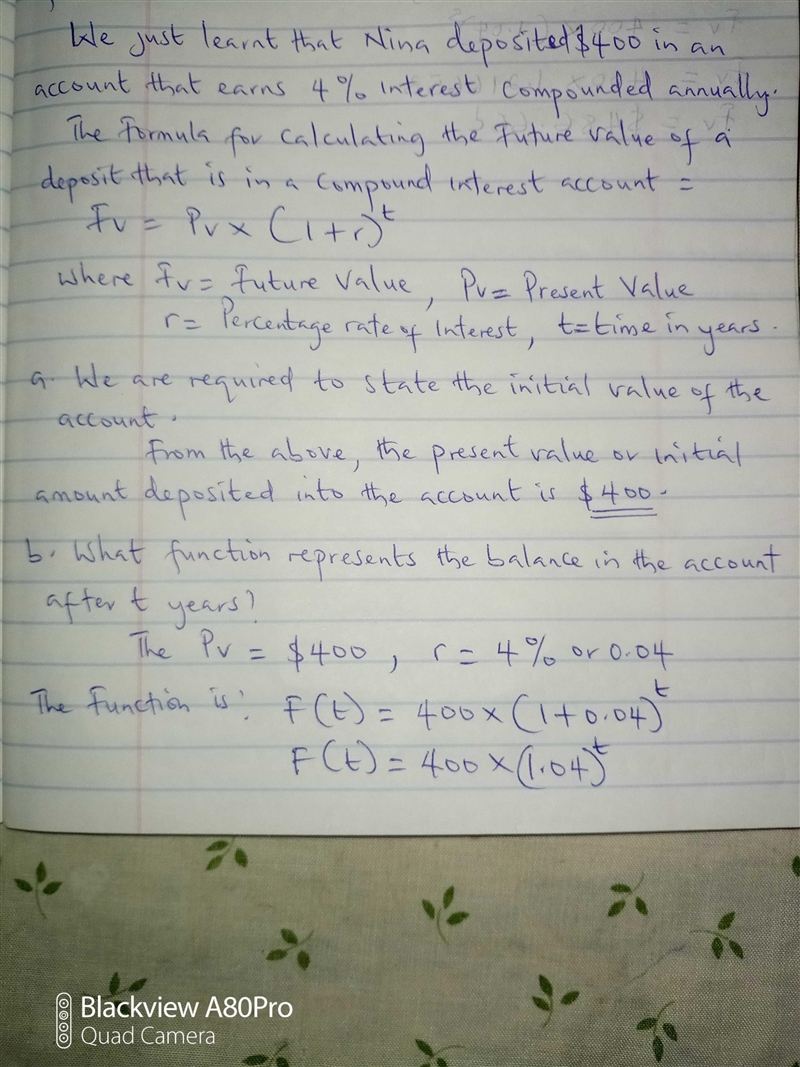 We just learnt that Nina deposited $400 in an
account that earns 4% interest compounded annually.
The Formula for calculating the Future value of a
deposit that is in a compound interest account =
Fv = Pv x (1+r)^t
where Fv = Future Value, Pv = Present Value
r = Percentage rate of interest, t = time in years.
a. We are required to state the initial value of the
account.
From the above, the present value or initial
amount deposited into the account is $400.
b. What function represents the balance in the account
after t years?
The Pv = $400, r = 4% or 0.04
The Function is: F(t) = 400 x (1+0.04)^t
F(t) = 400 x (1.04)^t
Blackview A80Pro
Quad Camera